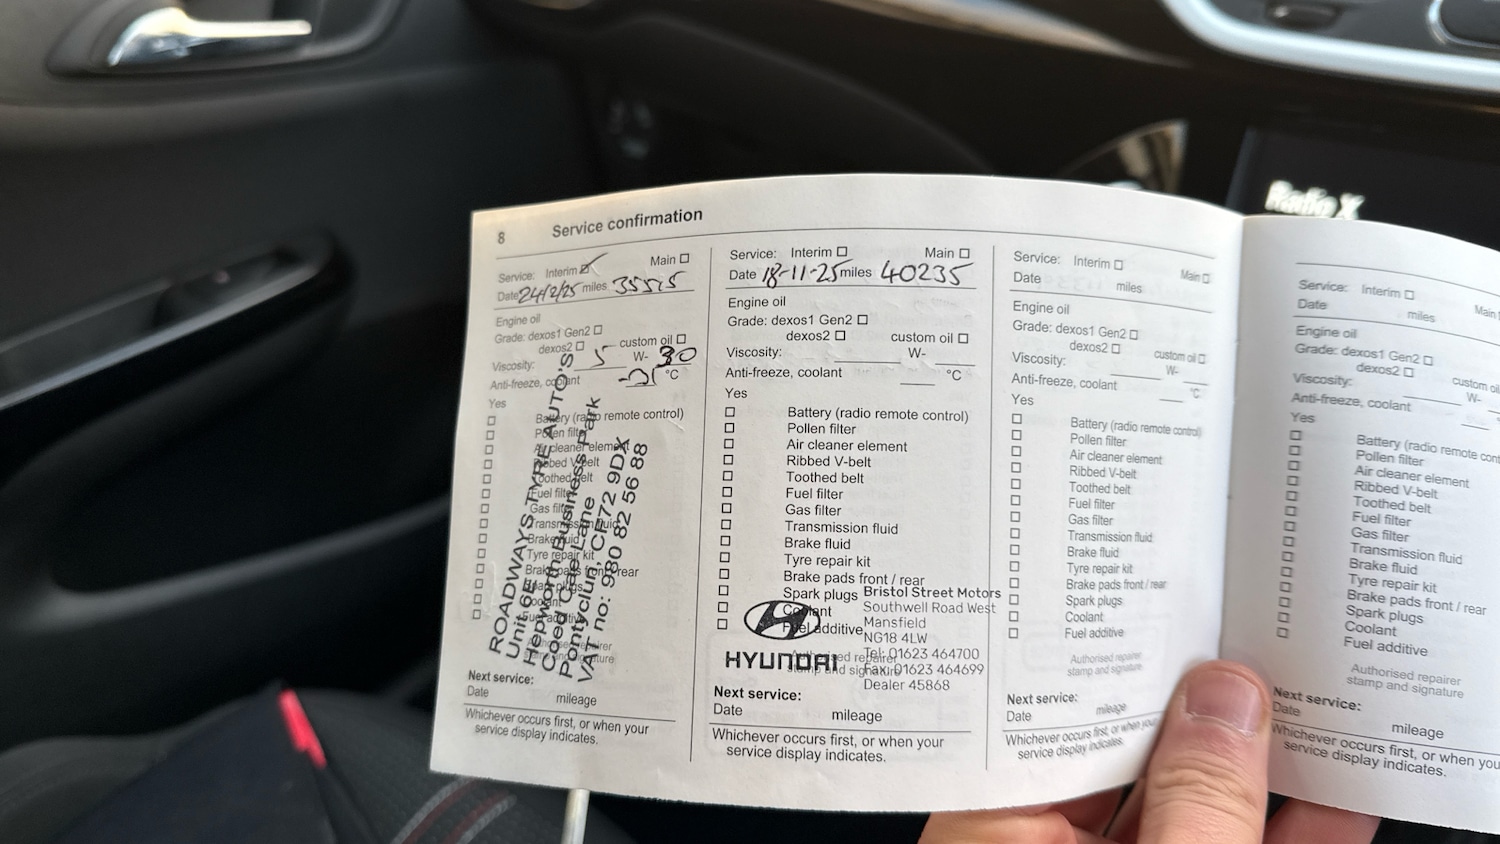 Radio X
8 Service confirmation
Service: Interim ☑ Main ☐
Date 24/2/25 miles 35515
Engine oil
Grade: dexos1 Gen2 ☐
dexos2 ☐ custom oil ☐
Viscosity: 5 W- 30
Anti-freeze, coolant °C
Yes
☐ Battery (radio remote control)
☐ Pollen filter
☐ Air cleaner element
☐ Ribbed V-belt
☐ Toothed belt
☐ Fuel filter
☐ Gas filter
☐ Transmission fluid
☐ Brake fluid
☐ Tyre repair kit
☐ Brake pads front / rear
☐ Spark plugs
☐ Coolant
☐ Fuel additive
ROADWAYS TYRE AUTO'S
Unit 6E
Hepworth Business Park
Coed Cae Lane
Pontyclun, CF72 9DX
VAT no: 980 82 56 88
Next service:
Date mileage
Whichever occurs first, or when your
service display indicates.
Service: Interim ☐ Main ☐
Date 18-11-25 miles 40235
Engine oil
Grade: dexos1 Gen2 ☐
dexos2 ☐ custom oil ☐
Viscosity: W-
Anti-freeze, coolant °C
Yes
☐ Battery (radio remote control)
☐ Pollen filter
☐ Air cleaner element
☐ Ribbed V-belt
☐ Toothed belt
☐ Fuel filter
☐ Gas filter
☐ Transmission fluid
☐ Brake fluid
☐ Tyre repair kit
☐ Brake pads front / rear
☐ Spark plugs
☐ Coolant
☐ Fuel additive
Authorised repairer
stamp and signature
HYUNDAI
Bristol Street Motors
Southwell Road West
Mansfield
NG18 4LW
Tel: 01623 464700
Fax: 01623 464699
Dealer 45868
Next service:
Date mileage
Whichever occurs first, or when your
service display indicates.
Service: Interim ☐ Main ☐
Date miles
Engine oil
Grade: dexos1 Gen2 ☐
dexos2 ☐ custom oil ☐
Viscosity: W-
Anti-freeze, coolant °C
Yes
☐ Battery (radio remote control)
☐ Pollen filter
☐ Air cleaner element
☐ Ribbed V-belt
☐ Toothed belt
☐ Fuel filter
☐ Gas filter
☐ Transmission fluid
☐ Brake fluid
☐ Tyre repair kit
☐ Brake pads front / rear
☐ Spark plugs
☐ Coolant
☐ Fuel additive
Authorised repairer
stamp and signature
Next service:
Date mileage
Whichever occurs first, or when your
service display indicates.
Service: Interim ☐ Main
Date miles
Engine oil
Grade: dexos1 Gen2 ☐
dexos2 ☐ custom oil
Viscosity: W-
Anti-freeze, coolant
Yes
☐ Battery (radio remote cont
☐ Pollen filter
☐ Air cleaner element
☐ Ribbed V-belt
☐ Toothed belt
☐ Fuel filter
☐ Gas filter
☐ Transmission fluid
☐ Brake fluid
☐ Tyre repair kit
☐ Brake pads front / rear
☐ Spark plugs
☐ Coolant
Fuel additive
Authorised repairer
stamp and signature
Next service:
Date mileage
Whichever occurs first, or when you
service display indicates.